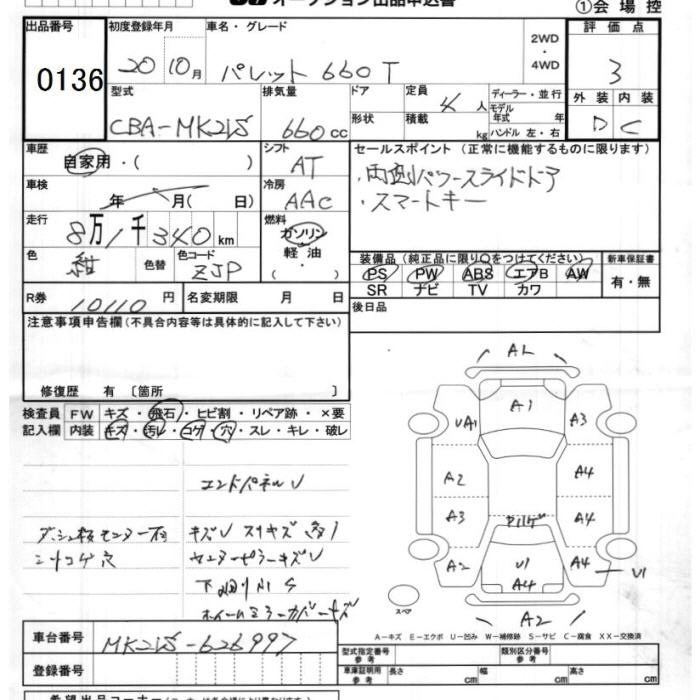 オークション出品申込書
①会場控
出品番号 0136
初度登録年月 20 10月
車名・グレード パレット 660 T
2WD・4WD
評価点 3
外装 D 内装 C
型式 CBA-MK21S
排気量 660cc
ドア
形状
定員 4人
積載 kg
ディーラー・並行
モデル年式 年
ハンドル 左・右
車歴 自家用・( )
シフト AT
セールスポイント (正常に機能するものに限ります)
・両側パワースライドドア
・スマートキー
車検 年 月( 日)
冷房 AAC
走行 8万1千340km
燃料 ガソリン 軽油 ( ・ )
色 紺 色替 色コード ZJP
装備品 (純正品に限り○をつけてください)
PS PW ABS エアB AW
SR ナビ TV カワ
新車保証書 有・無
R券 10110円
名変期限 月 日
後日品
注意事項申告欄 (不具合内容等は具体的に記入して下さい)
修復歴 有 〔箇所 〕
検査員 FW キズ・飛石・ヒビ割・リペア跡・×要
記入欄 内装 キズ・汚レ・コゲ・穴・スレ・キレ・破レ
エンドパネルU
シリコゲ穴
キズU スリキズ 多リ
センターピラーキズU
下廻りサS
A1
A1
UA1 A3
A2 A4
A3 A4
A2 U1 A4 A4 U1
A2
スペア
A−キズ E−エクボ U−凹み W−補修跡 S−サビ C−腐食 XX−交換済
車台番号 MK21S-626997
登録番号
型式指定番号 参考
類別区分番号 参考
車庫証明用 参考 長さ cm 幅 cm 高さ cm
希望出品コーナー